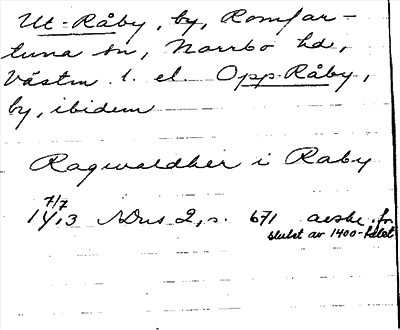 Ut-Råby, by, Romfar-
tuna sn, Norrbo hd,
Västm. l. el. Opp-Råby,
by, ibidem
Ragwaldher i Raby
7/7
1413 NDns 2, s. 671 avskr. fr.
slutet av 1400-talet